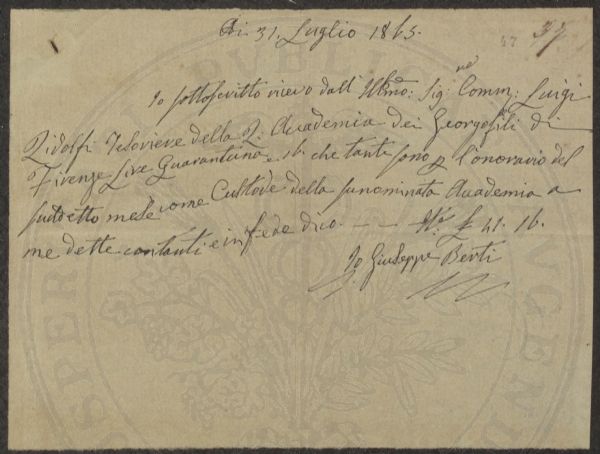 Di 31. Luglio 1865.
57 37
Io sottoscritto ricevo dall' Illmo: Sig:re Comm: Luigi
Ridolfi Tesoriere della R: Accademia dei Georgofili di
Firenze Lire Quarantuna, e 16. che tante sono p l'onorario del
sudetto mese come Custode della sunominata Accademia a
me dette contanti e in fede dico. — — £ 41. 16.
Io Giuseppe Berti
PROSPERITÀ PUBBLICA